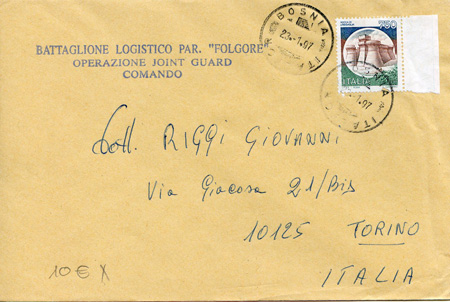 BATTAGLIONE LOGISTICO PAR. "FOLGORE"
OPERAZIONE JOINT GUARD
COMANDO
BOSNIA
23.-1.97
750
ITALIA
Coll. RIGGI GIOVANNI
Via Giacosa 21/Bis
10125 TORINO
ITALIA
10€ X